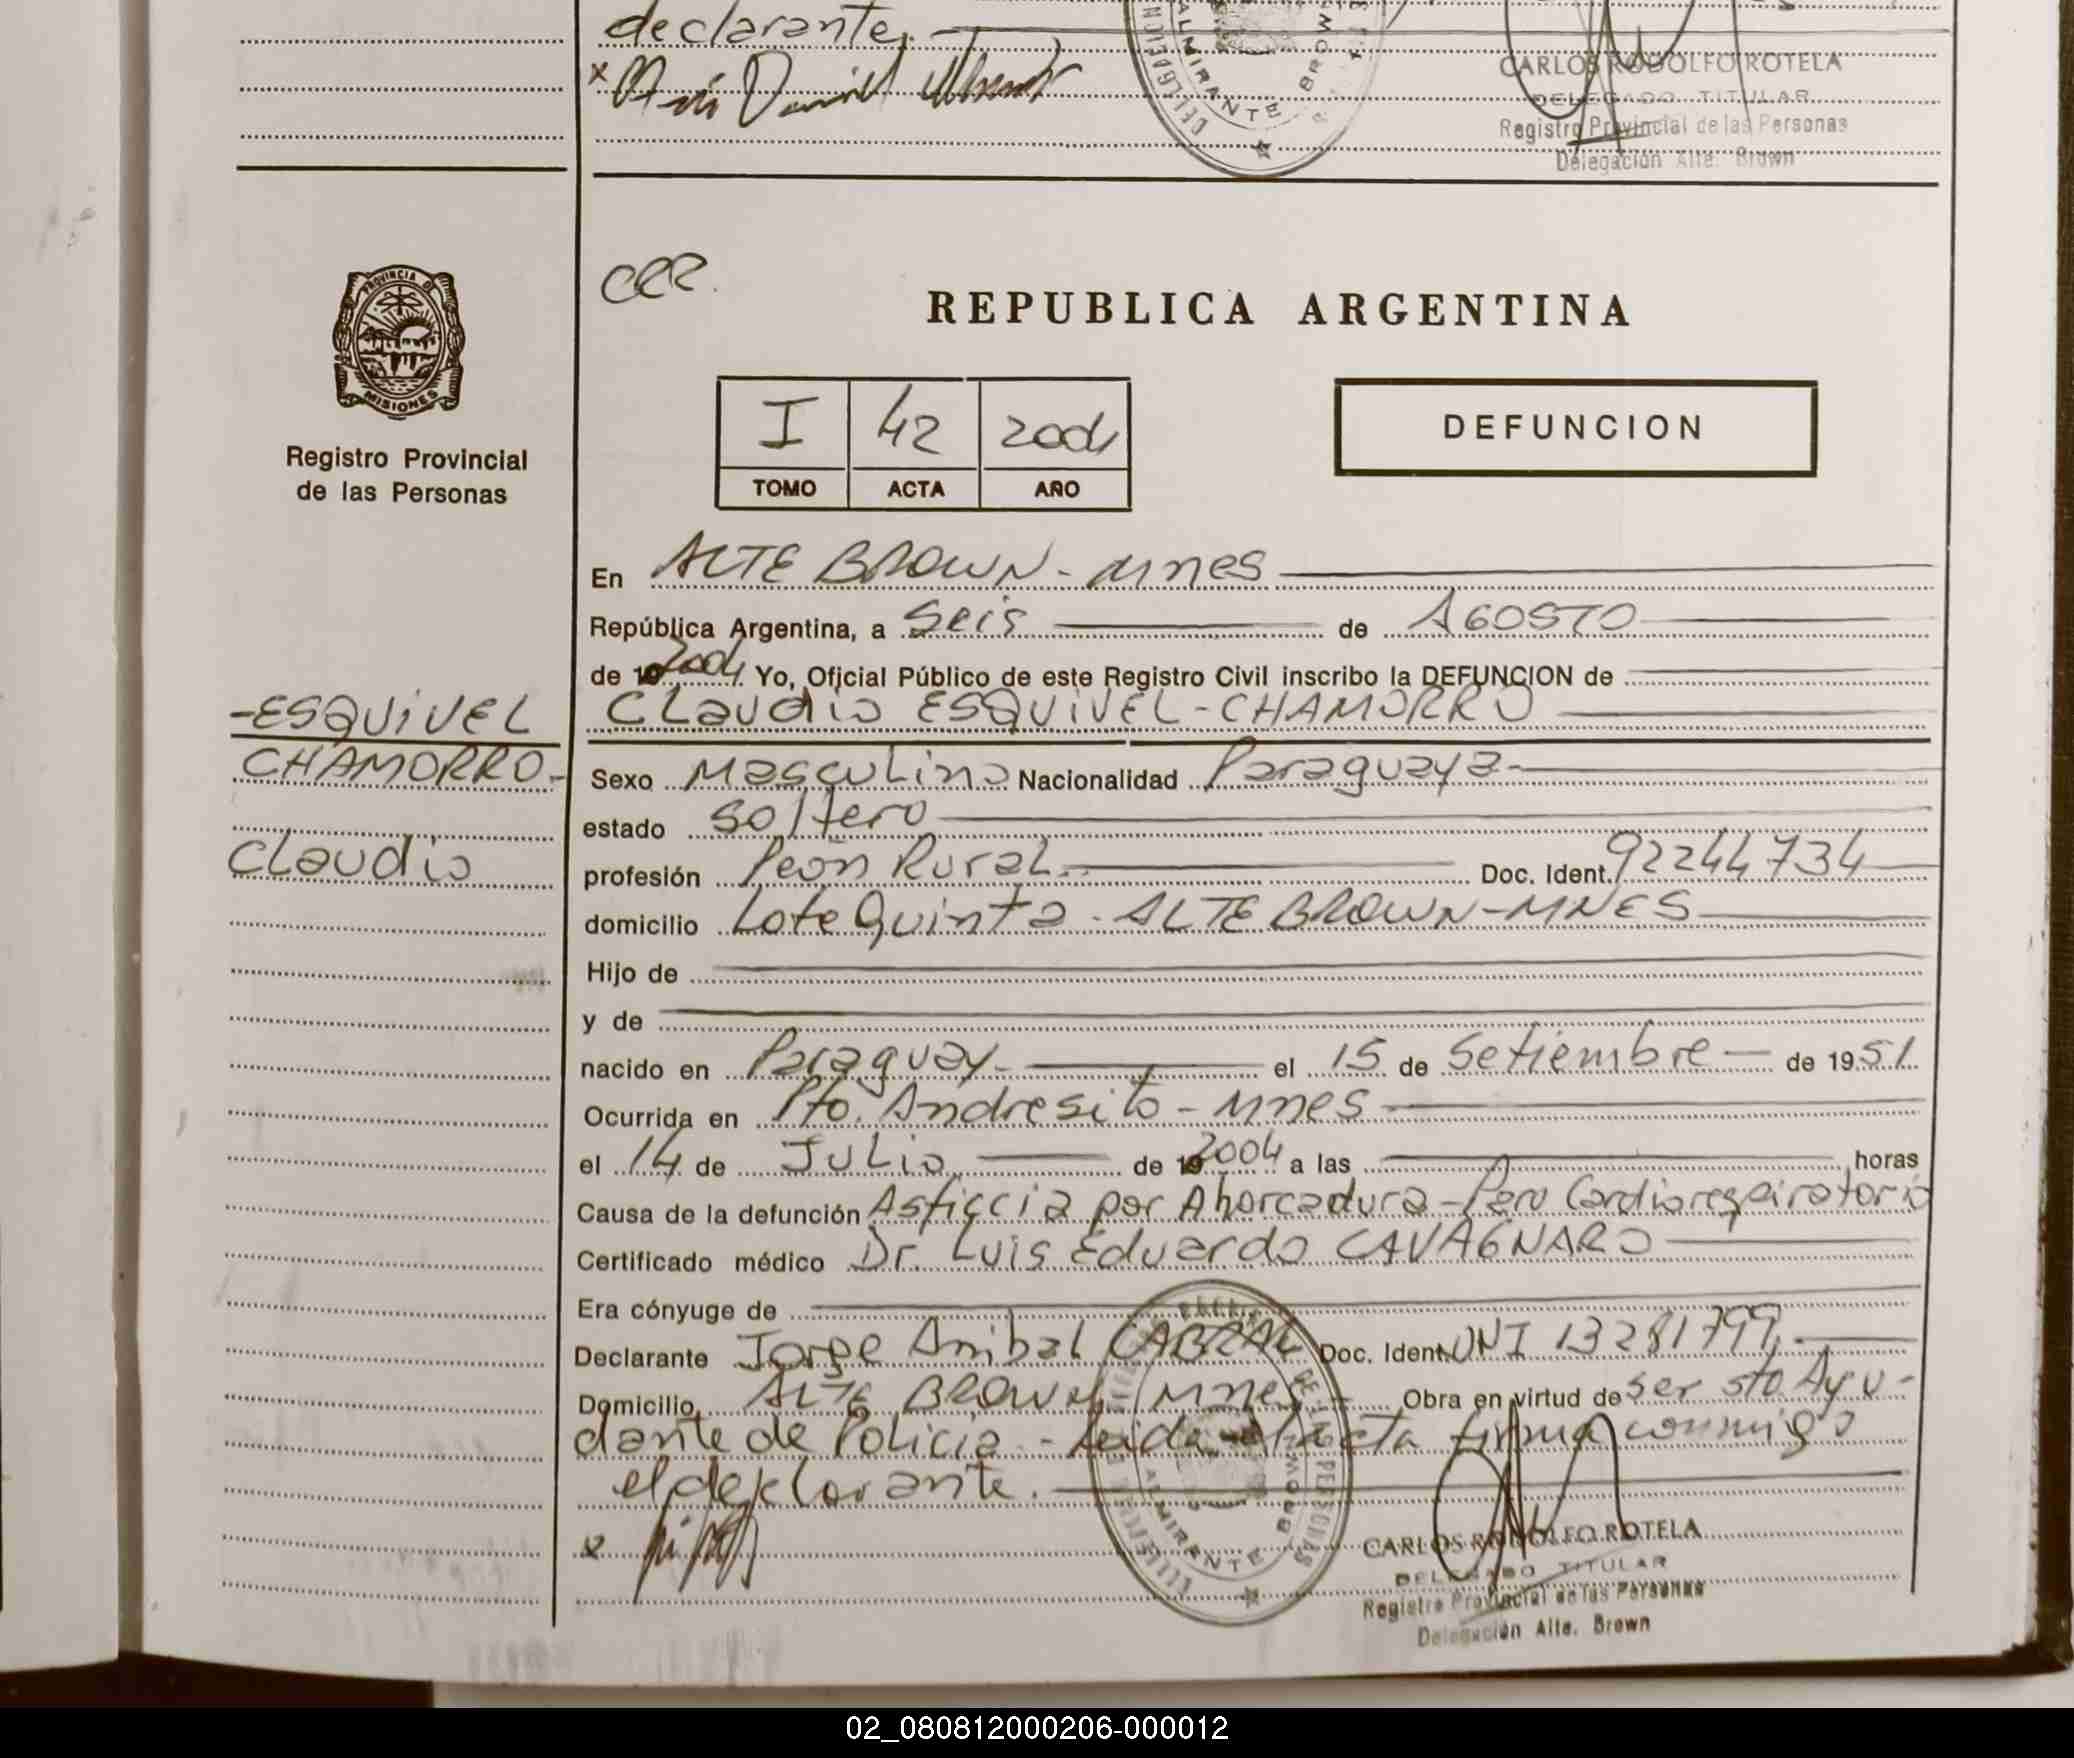 declarante.
CARLOS RODOLFO ROTELA
DELEGADO TITULAR
Registro Provincial de las Personas
Delegación Alte. Brown
ALMIRANTE BROWN
PROVINCIA DE
MISIONES
Registro Provincial
de las Personas
REPUBLICA ARGENTINA
I 42 2004
TOMO ACTA AÑO
DEFUNCION
En ALTE BROWN - Mnes
República Argentina, a Seis de AGOSTO
de 19 2004 Yo, Oficial Público de este Registro Civil inscribo la DEFUNCION de
-ESQUIVEL
CHAMORRO-
Claudio
Claudio ESQUIVEL-CHAMORRO
Sexo Masculino Nacionalidad Paraguaya-
estado Soltero
profesión Peón Rural.- Doc. Ident. 92244734
domicilio Lote Quinta - ALTE BROWN-MNES
Hijo de
y de
nacido en Paraguay- el 15 de Setiembre de 1951
Ocurrida en Pto. Andresito - Mnes
el 14 de Julio de 19 2004 a las horas
Causa de la defunción Asficcia por Ahorcadura-Paro Cardiorespiratorio
Certificado médico Dr. Luis Eduardo CAVAGNARO
Era cónyuge de
Declarante Jorge Anibal CABRAL Doc. Ident. DNI 13281799.-
Domicilio ALTE BROWN Mnes Obra en virtud de ser sto Ayu-
dante de Policia - Leida el acta firma conmigo
el declarante.
x
ALMIRANTE BROWN
DE LAS PERSONAS
CARLOS RODOLFO ROTELA
DELEGADO TITULAR
Registro Provincial de las Personas
Delegación Alte. Brown
02_080812000206-000012